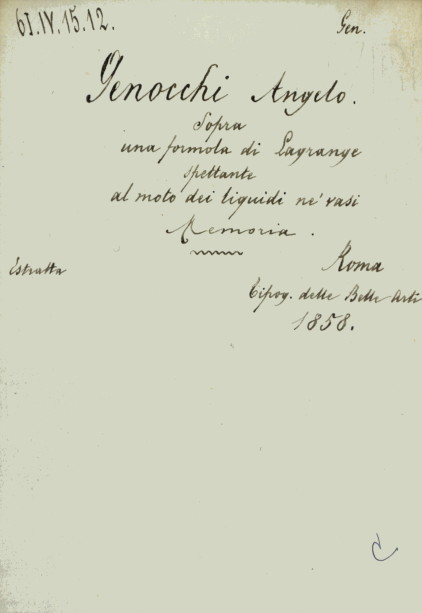 61.IV.15.12.
Gen.
Genocchi Angelo.
Sopra
una formola di Lagrange
spettante
al moto dei liquidi ne' vasi
Memoria.
Estratta
Roma
Tipog. delle Belle Arti
1858.